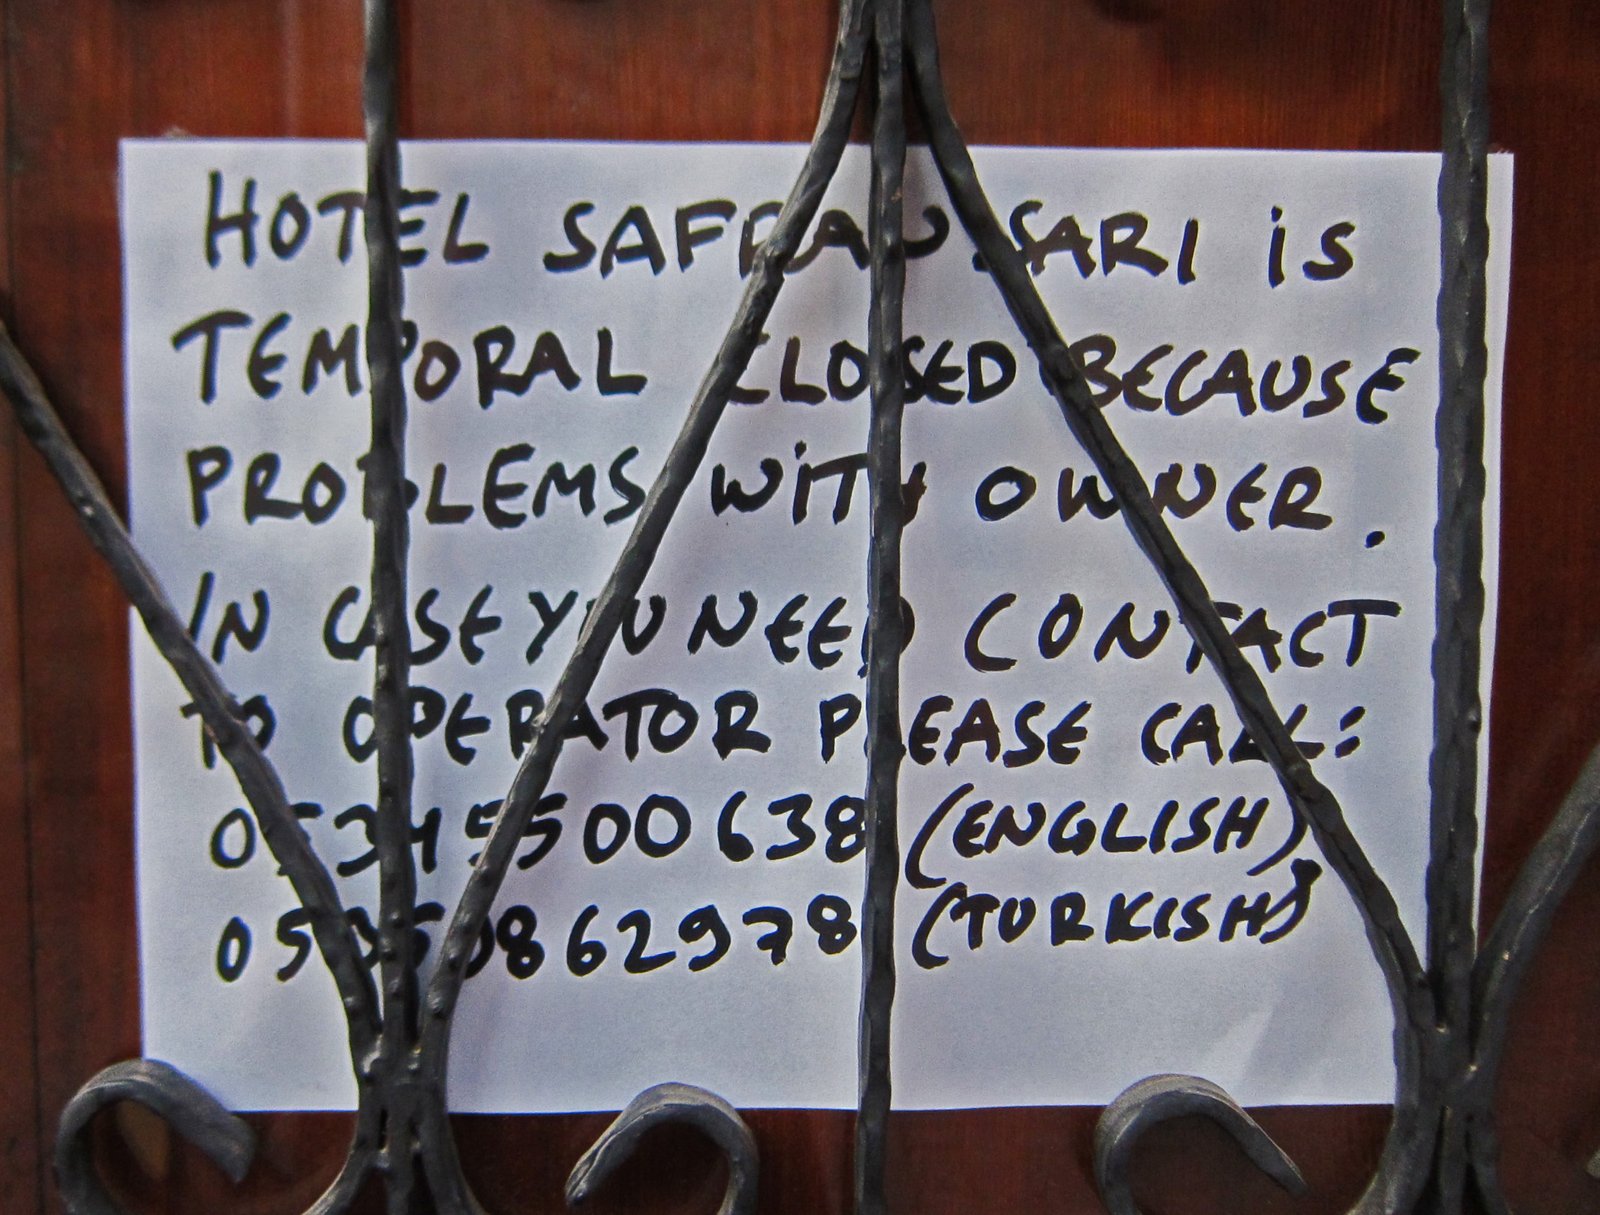 HOTEL SAFRAN SARI iS
TEMPORAL CLOSED BECAUSE
PROBLEMS WiTH OWNER.
IN CASE YOU NEED CONTACT
TO OPERATOR PLEASE CALL:
05345500638 (ENGLISH)
(TURKISH)